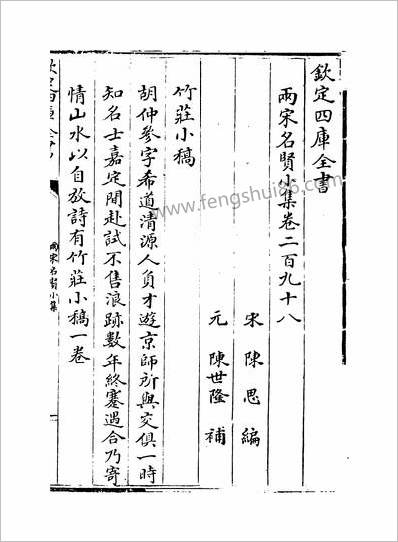 欽定四庫全書
兩宋名賢小集卷二百九十八
宋 陳思 編
元 陳世隆 補
竹莊小稿
胡仲參字希道清源人負才遊京師所與交俱一時
知名士嘉定間赴試不售浪跡數年終蹇遇合乃寄
情山水以自放詩有竹莊小稿一卷
兩宋名賢小集
www.fengshui86.com